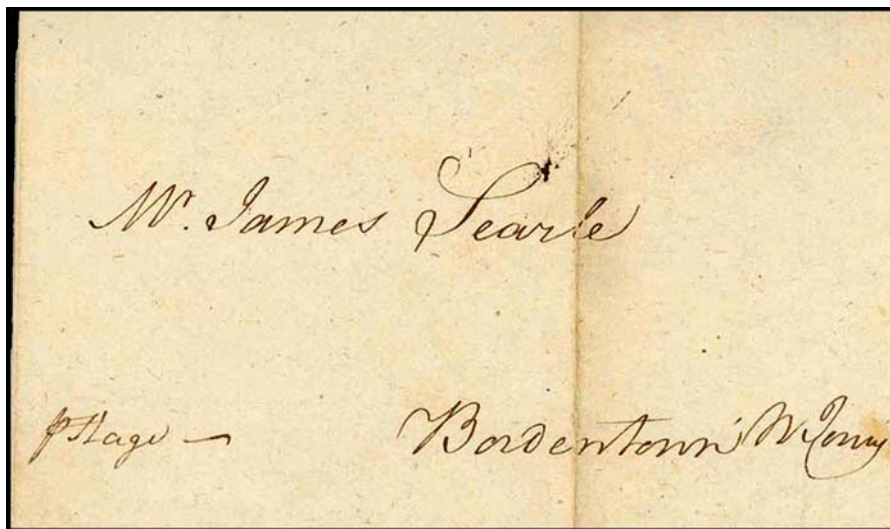 Mr. James Searle
p Stage —
Bordentown N Jersey